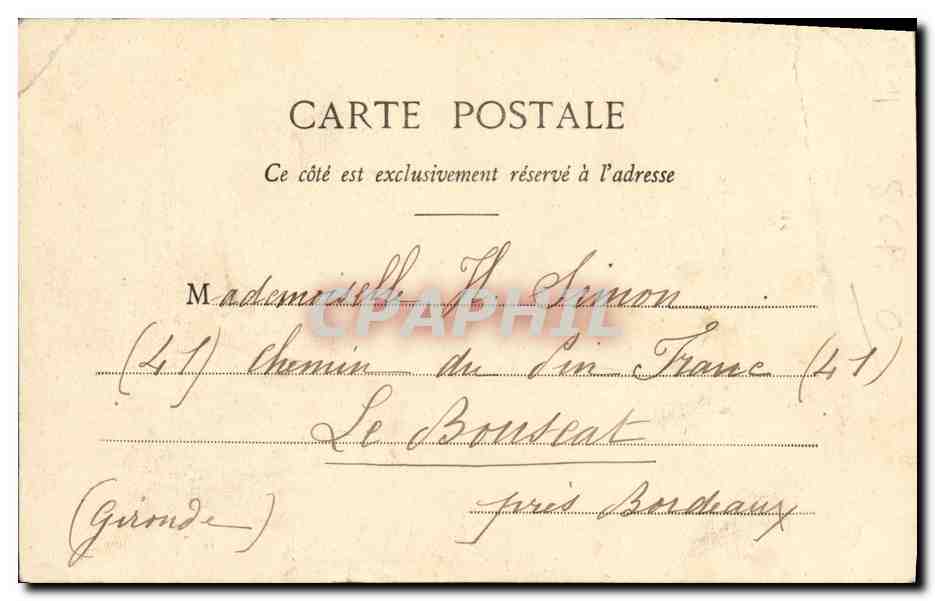 CARTE POSTALE
Ce côté est exclusivement réservé à l'adresse
Mademoiselle H. Simon
CPAPHIL
(41) Chemin du Pin Franc (41)
Le Bouscat
près Bordeaux
(Gironde)